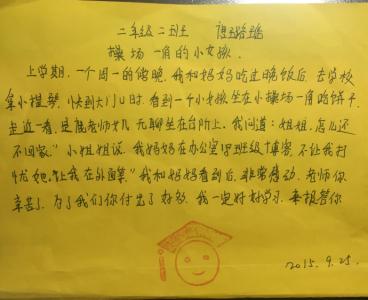 二年级二班
操场一角的小女孩
上学期,一个周一的傍晚,我和妈妈吃过晚饭后,去学校
拿小提琴,快到大门口时,看到一个小女孩坐在小操场一角吃饼干,
走近一看,是崔老师女儿,无聊坐在台阶上。我问道:姐姐,怎么还
不回家?"小姐姐说:我妈妈在办公室写班级博客,不让我打
忧她,让我在外面等。"我和妈妈看到后,非常感动,老师你
辛苦了,为了我们你付出了好多,我一定好好学习,来报答你
2015.9.25.